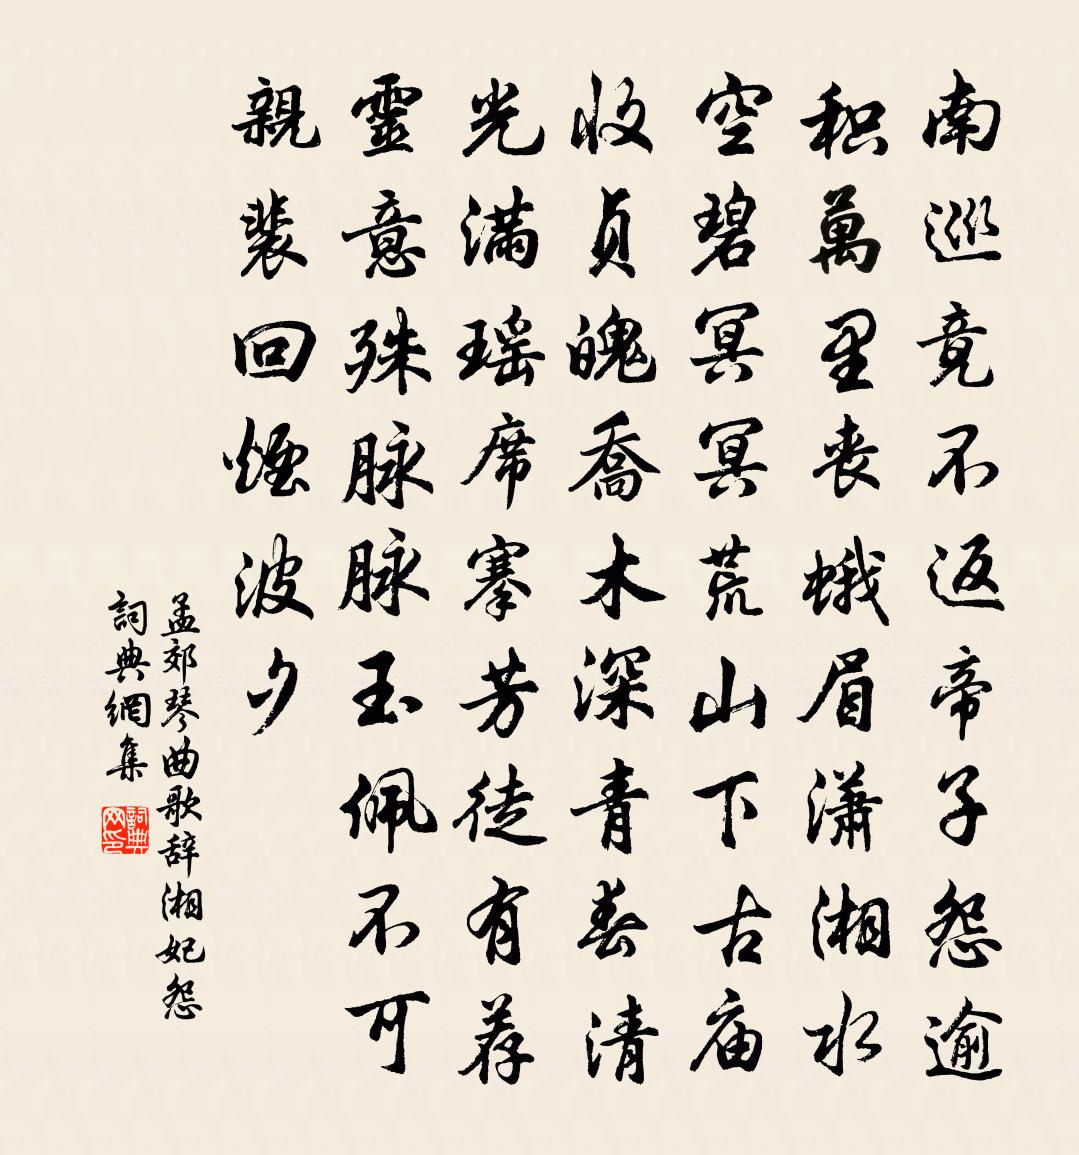 南巡竟不返帝子怨逾
积萬里丧蛾眉潇湘水
空碧冥冥荒山下古庙
收貞魄喬木深青春清
光滿瑶席搴芳徒有荐
靈意殊脉脉玉佩不可
親裴回煙波夕
孟郊琴曲歌辞湘妃怨
詞典網集
詞典网印